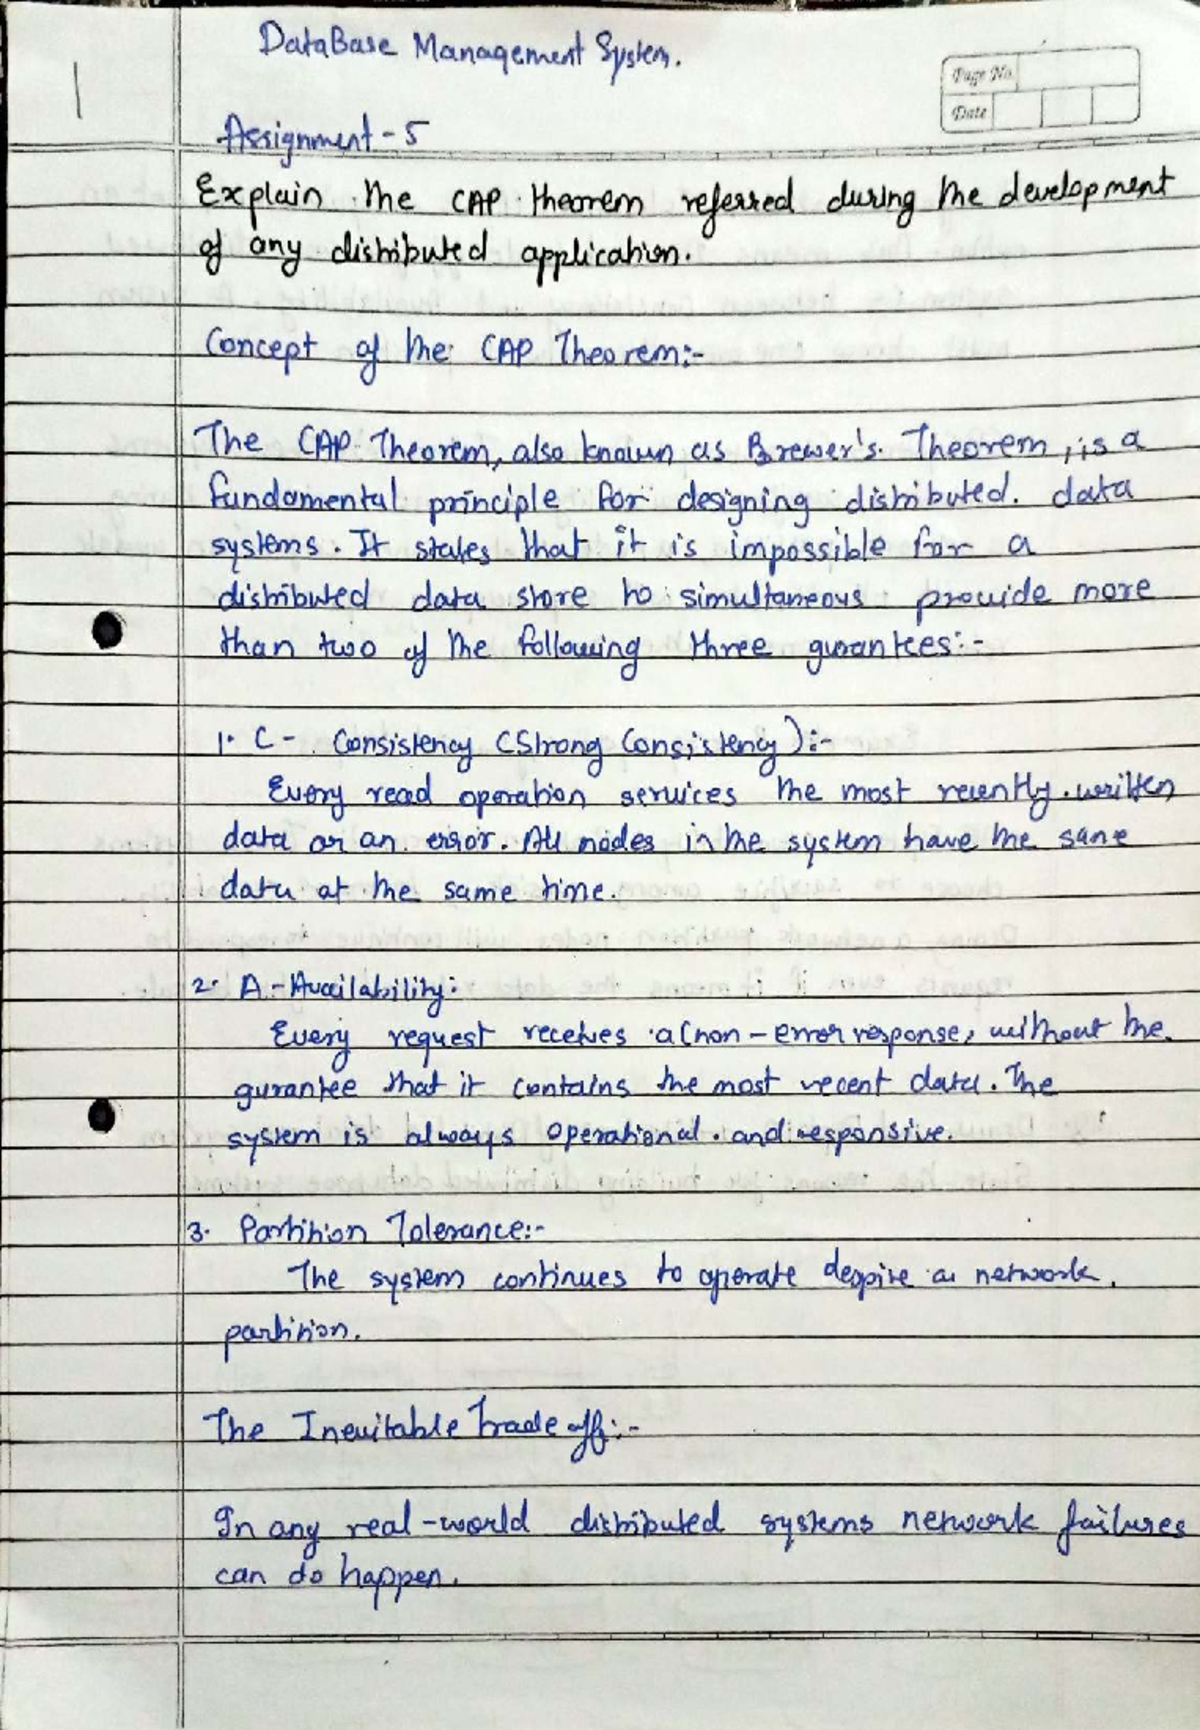 DataBase Management System.
Page No.
Date
Assignment - 5
Explain the CAP theorem referred during the development
of any distributed application.
Concept of the CAP Theorem:-
The CAP Theorem, also known as Brewer's Theorem, is a
fundamental principle for designing distributed. data
systems. It states that it is impossible for a
distributed data store to simultaneous provide more
than two of the following three gurantees:-
1. C - Consistency (Strong Consistency):-
Every read operation services the most recently written
data or an error. All nodes in the system have the same
data at the same time.
2. A - Availability:
Every request receives a (non-error response, without the
gurantee that it contains the most recent data. The
system is always operational. and responsive.
3. Partition Tolerance:-
The system continues to operate despite a network
partition.
The Inevitable Trade off:-
In any real-world distributed systems network failures
can do happen.